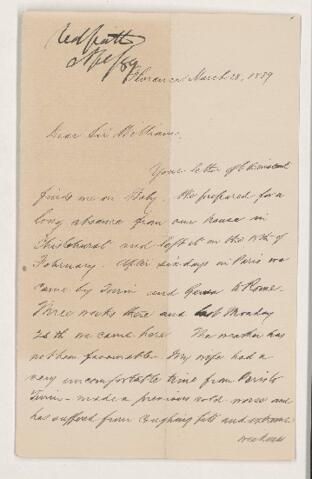 Florence March 28, 1889
Dear Sir William:
Your letter of instant
finds me in Italy. We prepared for a
long absence from our house in
Chislehurst and left it on the 18th of
February. After six days in Paris we
came by Turin and Genoa to Rome.
Three weeks there and last Monday
25th we came here The weather has
not been favourable. My wife had a
very uncomfortable time from Paris to
Turin - made a previous cold worse and
has suffered from coughing fits and extreme
weakness